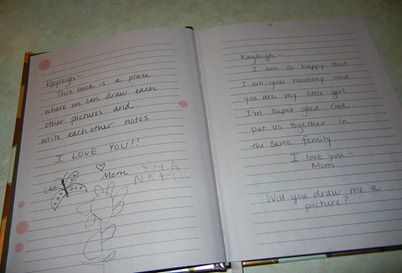 Kayleigh—
This book is a place
where we can draw each
other pictures and
write each other notes.
I LOVE YOU!!
Mom
Kayleigh—
I am so happy that
I am your mommy and
you are my little girl.
I'm super glad God
put us together in
the same family.
I love you—
Mom
Will you draw me a
picture?